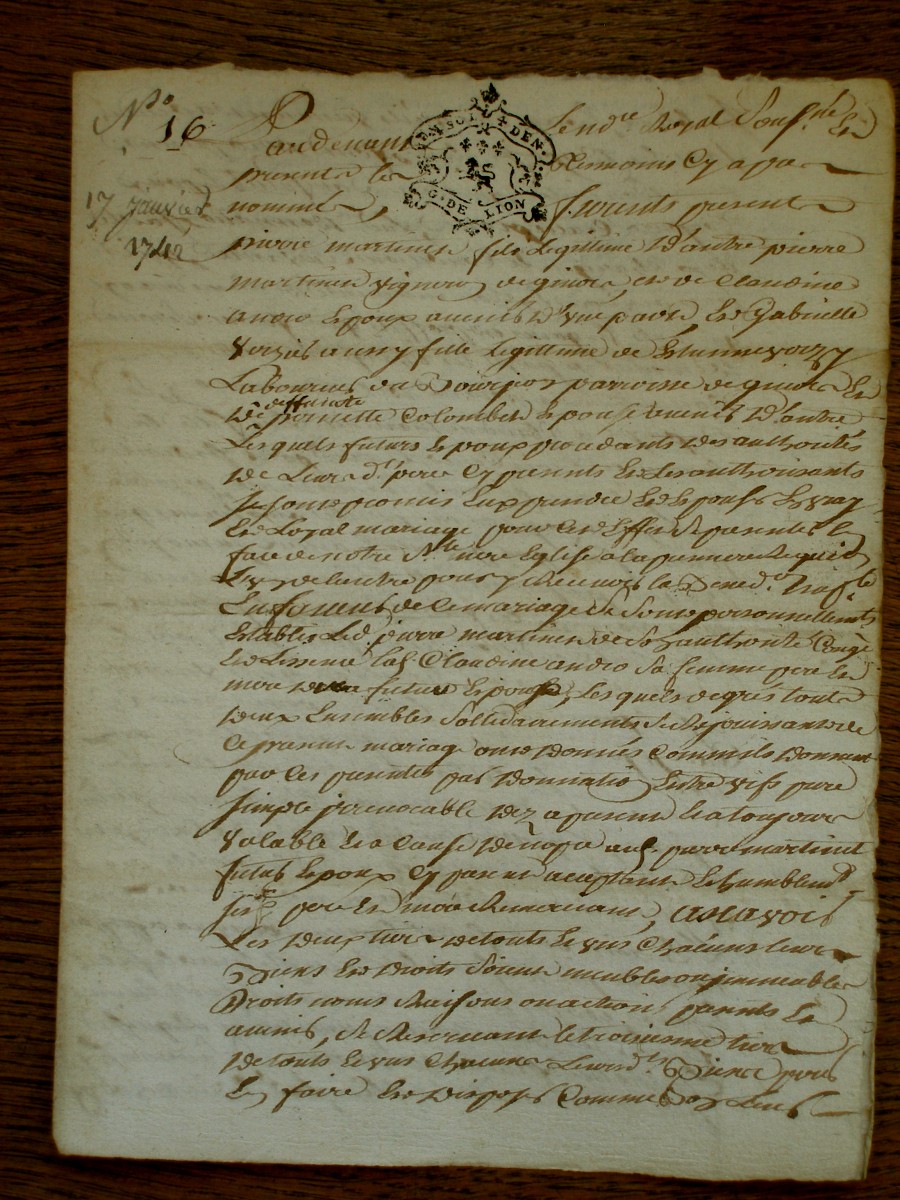 No
16
17 janvier
1742
SOL + DEN
G. DE LION
Pardevant le nore Royal sousné et
presents les temoins cy apa
nommés, furents presents
pierre martinet fils legittime d'autre pierre
martinet vigneron de et de Claudine
andro Epoux avenir d'une part Et Gabielle
fille legittime de Etienne
Laboureur de parroisse de Et
deffunte
de pernette Colombet Epouse avenir d'autre
Lesquels futurs Epoux procedants des authorités
de Leurs dts pere Cy presents Et Les authorisants
se sont promis Eux prendre Et Epouser En vray
Et Loyal mariage pour Cet Effet se presenter En
face de notre Ste mere Eglise a la premiere Requisi
L'un de L'autre pour y Recevoir la Bened.
En faveur de Ce mariage se sont personnellements
Establis Led. pierre martinet de Son authorité Congé
Et Licence lad. Claudine andro Sa femme pere Et
mere du futur Epoux, Lesquels de gré touts
deux Ensembles Sollidairements se Rejouissants de
Ce present mariage ont Donnés Comme ils Donnent
par Ces presentes par Donnation Entre vifs pure
simple irrevocable dez a present Et a toujours
valable Et a Cause de nopce aud. pierre martinet
futur Epoux Cy present acceptant Et humblemt
ses pere Et mere Remerciant, asavoir
Les deux tiers de touts Et uns Chacuns Leurs
Biens Et droits Soient meubles ou jmmeubles
Droits noms Raisons ou actions presents Et
avenir, se Reservant le troisieme tiers
de touts Et uns Chacuns Leursdts Biens pour
En faire Et Disposer Comme Bon Leur